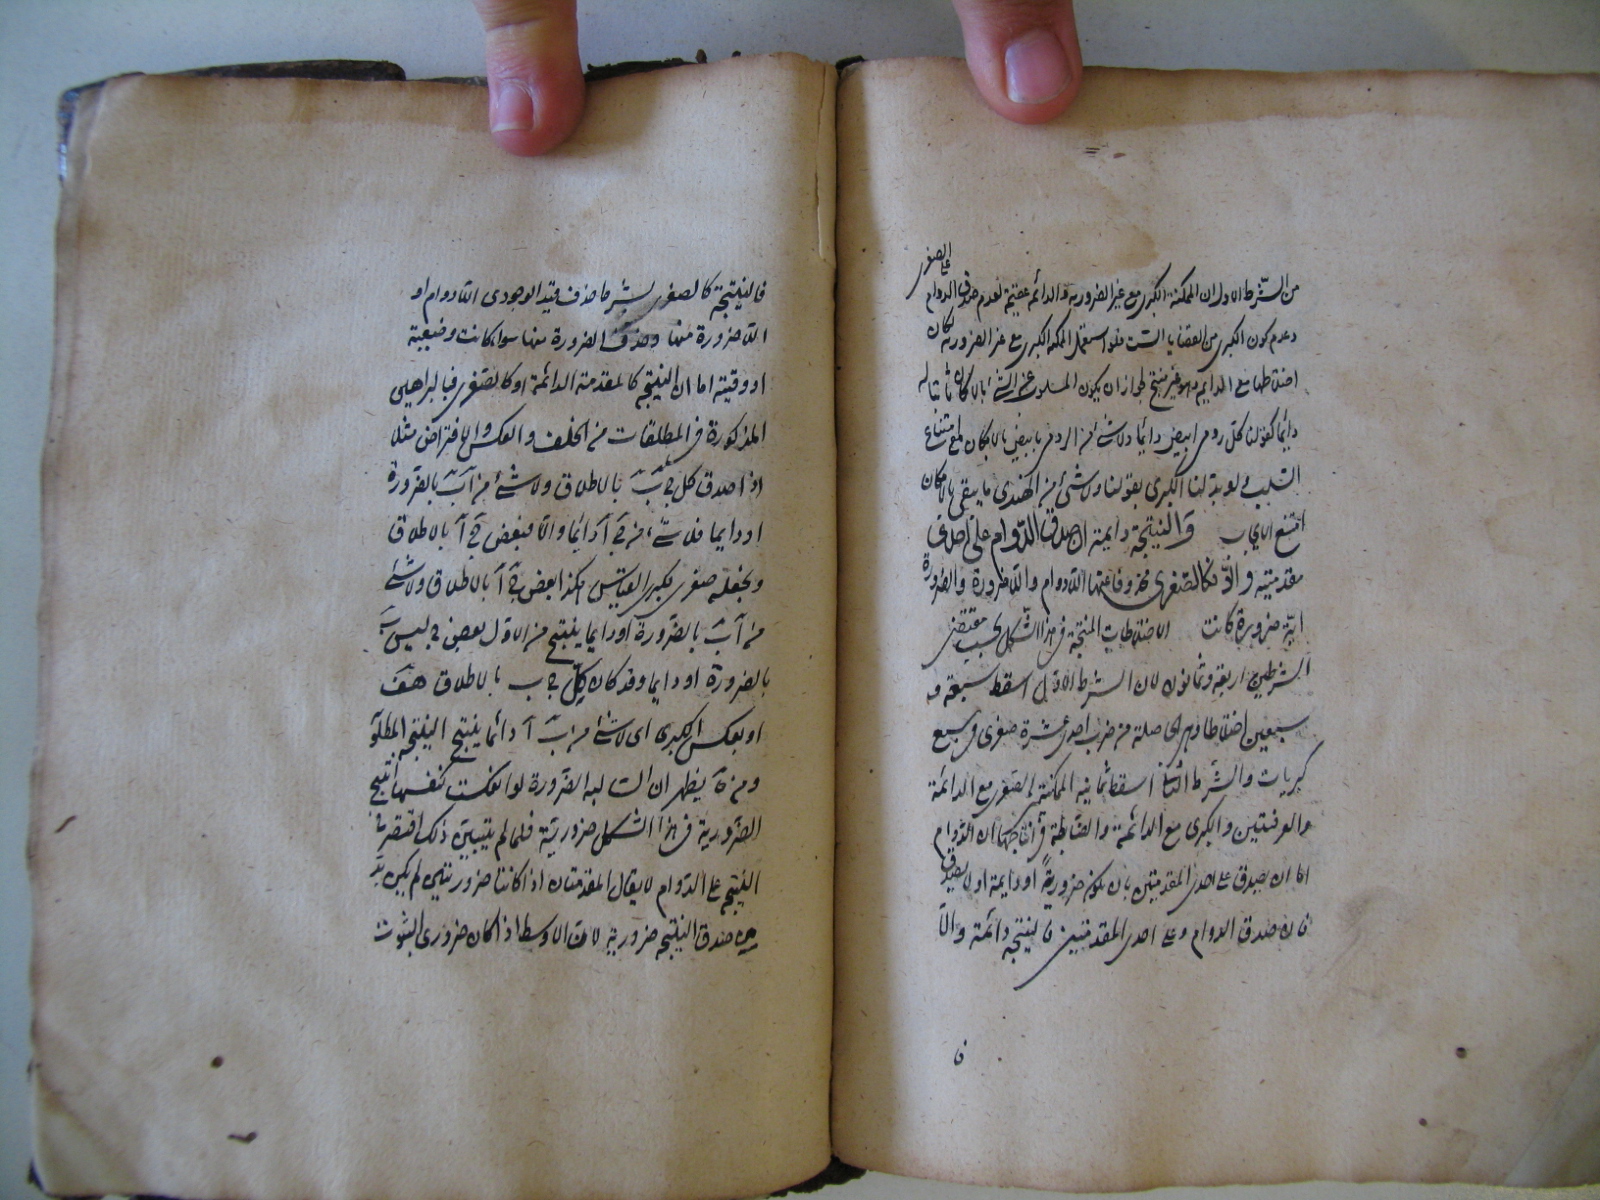 على الصغرى
من الشرط الاول ان الممكنة الكبرى مع غير الضرورية والدائمة عقيم لعدم صدق الدوام
وعدم كون الكبرى من القضايا الست فلو استعمل الممكنة الكبرى مع غير الضرورية لكان
اختلاطها مع الدايم وهو غير منتج لجواز ان يكون المسلوب عن الشئ بالامكان ثابتا له
دائما كقولنا كل رومي ابيض دائما ولا شئ من الرومي بابيض بالامكان مع امتناع
السلب ولو بدلنا الكبرى بقولنا ولا شئ من الهندي بالامكان
امتنع الايجاب والنتيجة دايمة ان صدق الدوام على احدى
مقدمتيه والا فكالصغرى محذوفا عنها اللادوام واللاضرورة والضرورة
اية ضرورة كانت الاختلاطات المنتجة في هذا الشكل بحسب مقتضى
الشرطين اربعة وثمانون لان الشرط الاول اسقط سبعة و
سبعين اختلاطا وهي الحاصلة من ضرب احدى عشرة صغرى في سبع
كبريات والشرط الثاني اسقط ثمانية الممكنة الصغرى مع الدائمة
والعرفيتين والكبرى مع الدائمة والضابطة في انتاجها ان الدوام
اما ان يصدق على احدى المقدمتين بان يكون ضرورية او دايمة او لا يصدق
فان صدق الدوام على احدى المقدمتين فالنتيجة دائمة والا
فا
فالنتيجة كالصغرى بشرط حذف قيد الوجودى اللادوام او
اللاضرورة منها وحذف الضرورة منها سواء كانت وصفية
او وقتية اما ان النتيجة كالمقدمة الدائمة او كالصغرى فبالبراهين
المذكورة في المطلقات من الخلف والعكس والافتراض مثلا
اذا صدق كل ج ب بالاطلاق ولا شئ من آ ب بالضرورة
او دايما فلا شئ من ج آ دائما والا فبعض ج آ بالاطلاق
ونجعله صغرى لكبرى القياس هكذا بعض ج آ بالاطلاق ولا شئ
من آ ب بالضرورة او دايما ينتج من الاول بعض ج ليس ب
بالضرورة او دايما وقد كان كل ج ب بالاطلاق هف
او بعكس الكبرى اى لا شئ من ب آ دائما ينتج النتيجة المطلو
ومن ثم يظهر ان السالبة الضرورة لو انعكست كنفسها انتج
الضرورية في هذا الشكل ضرورية فلما لم يتبين ذلك اقتصر في
النتيجة على الدوام لا يقال المقدمتان اذا كانتا ضروريتين لم يكن بد
من صدق النتيجة ضرورية لان الاوسط اذا كان ضروري الثبوت